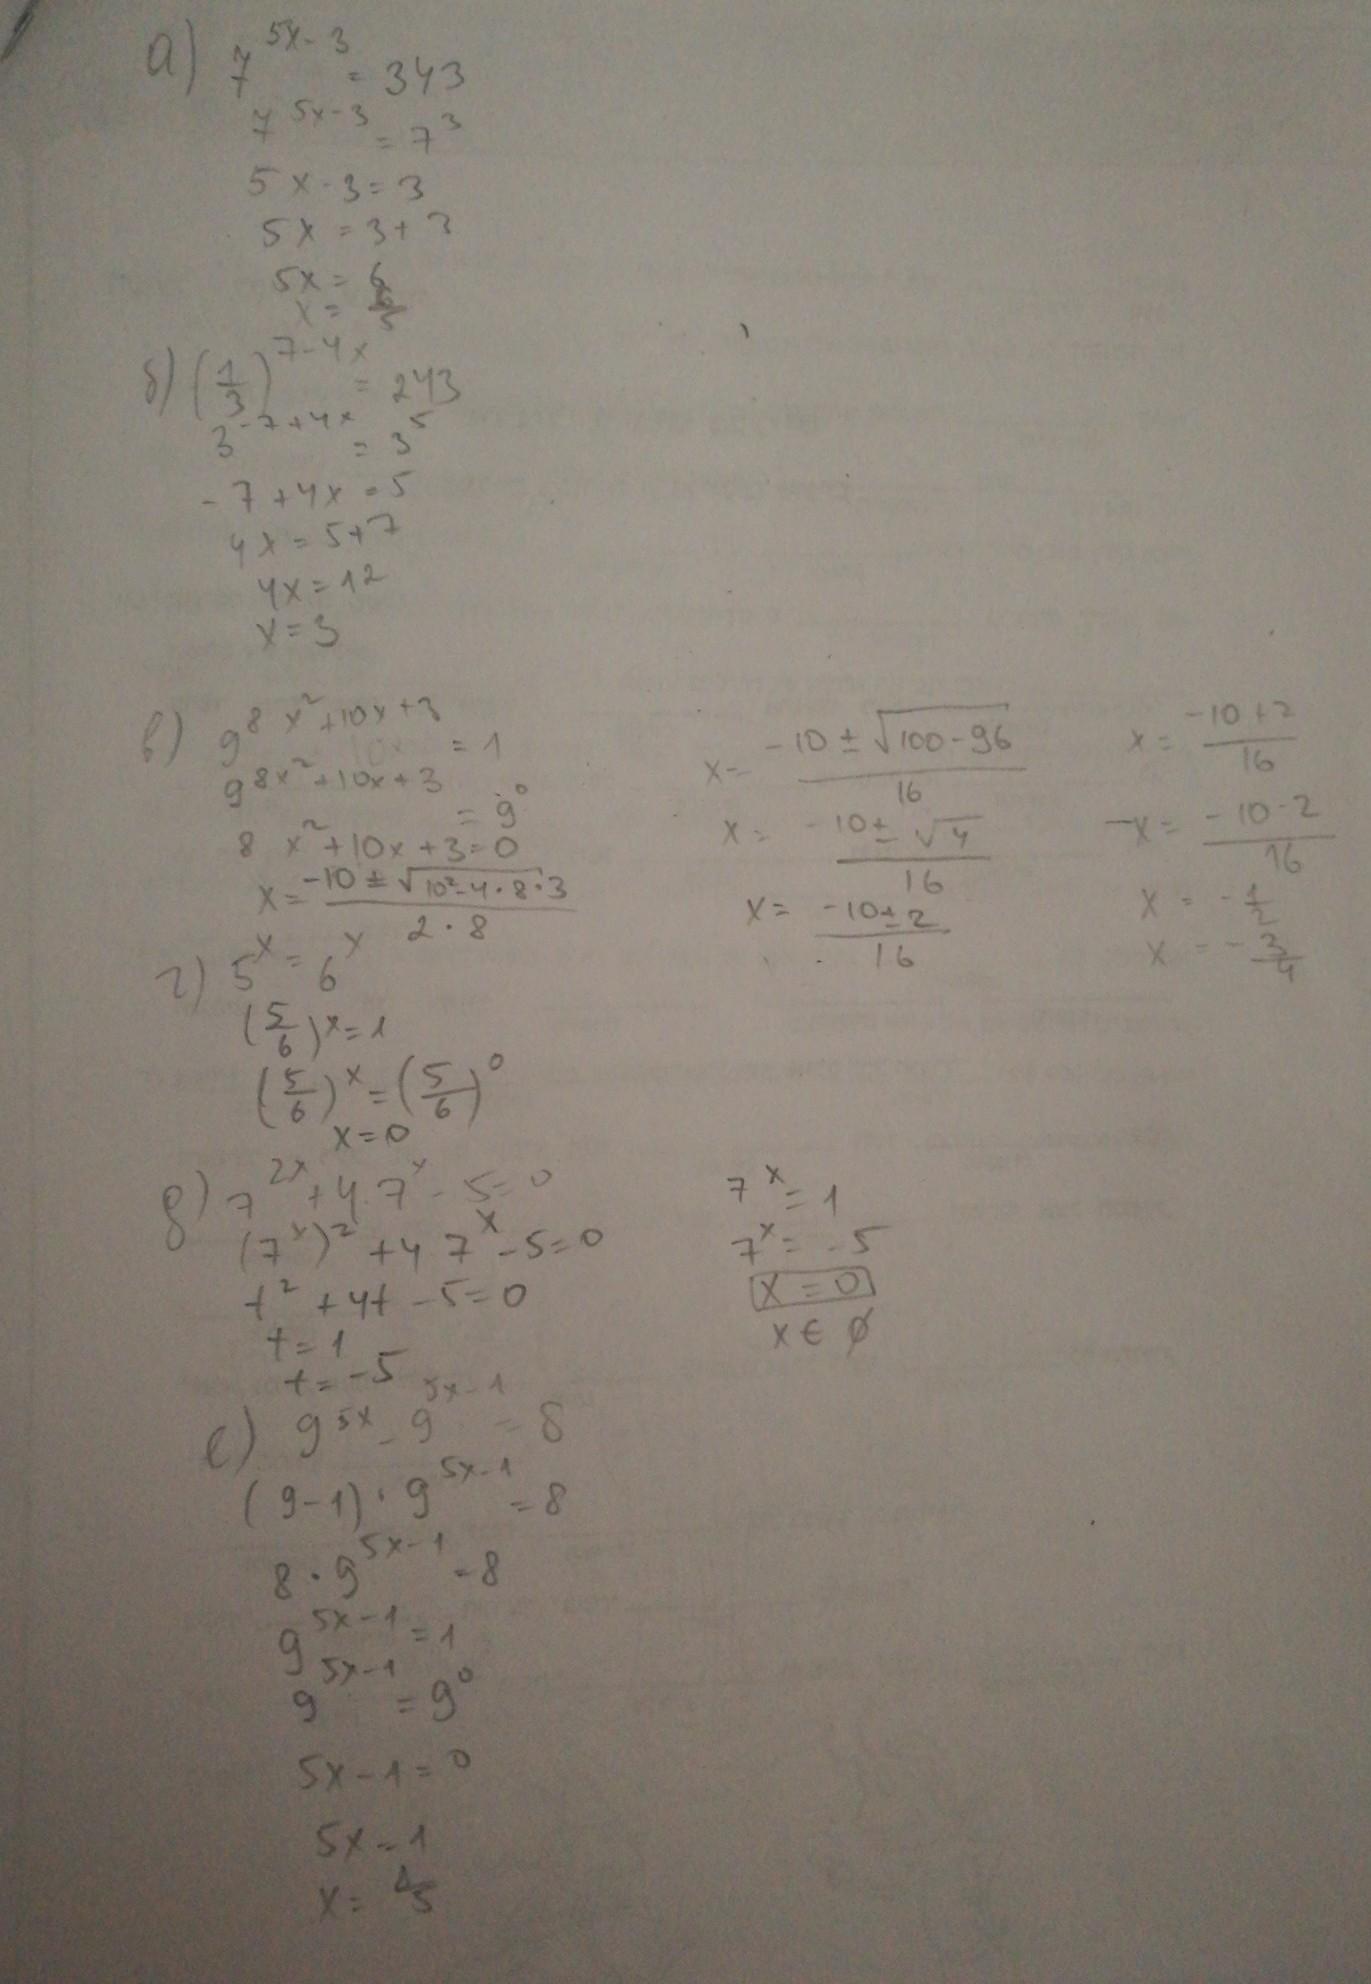 а) 7^{5x-3} = 343
7^{5x-3} = 7^3
5x-3=3
5x = 3+3
5x = 6
x = 6/5
б) (1/3)^{7-4x} = 243
3^{-7+4x} = 3^5
-7+4x=5
4x=5+7
4x=12
x=3
в) 9^{8x^2+10x+3} = 1
9^{8x^2+10x+3} = 9^0
8x^2+10x+3=0
x = (-10 ± √(10^2-4·8·3))/(2·8)
x = (-10 ± √(100-96))/16
x = (-10 ± √4)/16
x = (-10±2)/16
x = (-10+2)/16
x = (-10-2)/16
x = -1/2
x = -3/4
г) 5^x = 6^x
(5/6)^x = 1
(5/6)^x = (5/6)^0
x=0
д) 7^{2x}+4·7^x-5=0
(7^x)^2+4 7^x-5=0
t^2+4t-5=0
t=1
t=-5
7^x = 1
7^x = -5
x = 0
x ∈ ∅
е) 9^{5x} - 9^{5x-1} = 8
(9-1)·9^{5x-1} = 8
8·9^{5x-1} = 8
9^{5x-1} = 1
9^{5x-1} = 9^0
5x-1=0
5x=1
x = 1/5